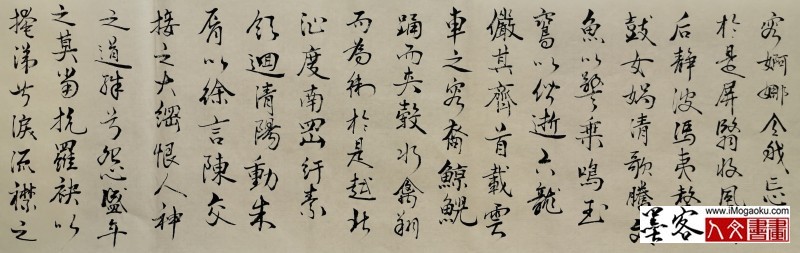 容婀娜令我忘
於是屏翳收風
后静波馮夷
鼓女媧清歌騰文
魚以警乘鳴玉
鸞以偕逝六龍
儼其齊首載雲
車之容裔鯨鯢
踊而夾轂水禽翔
而為衛於是越北
沚度南岡紆素
領迴清陽動朱
脣以徐言陳交
接之大綱恨人神
之道殊兮怨盛年
之莫當抗羅袂以
掩涕兮淚流襟之
www.iMogaoku.com
墨客
人文書畫